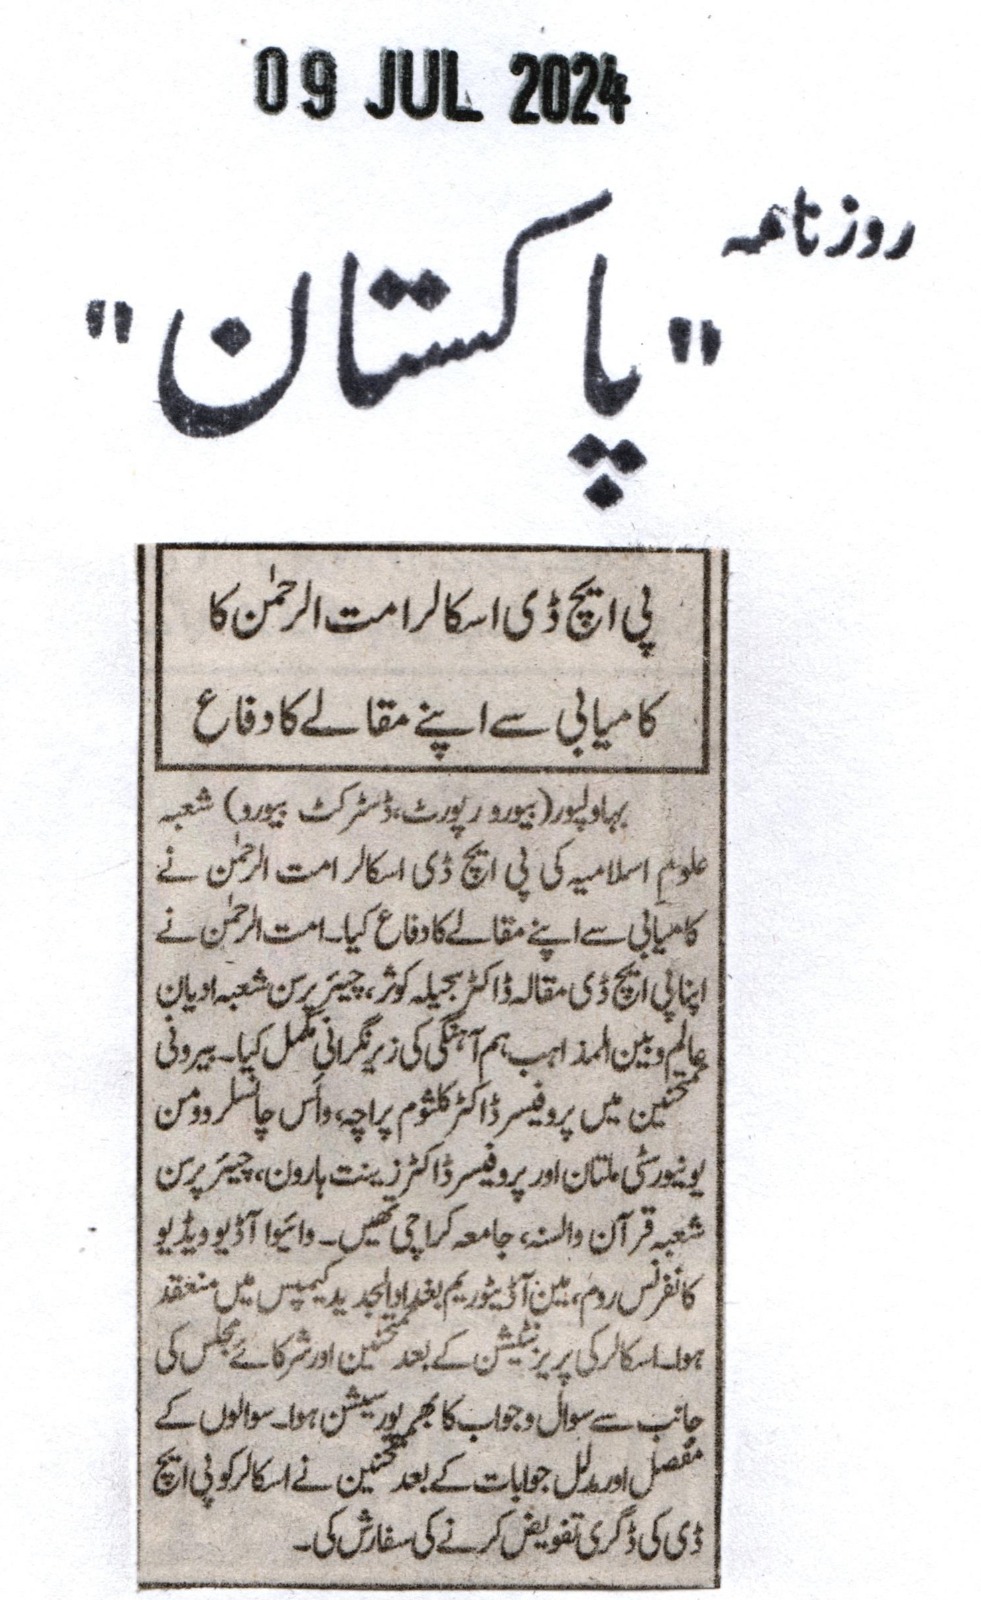 09 JUL 2024
روزنامہ
"پاکستان"
پی ایچ ڈی اسکالر امت الرحمٰن کا
کامیابی سے اپنے مقالے کا دفاع
بہاولپور (بیورو رپورٹ، ڈسٹرکٹ بیورو) شعبہ
علوم اسلامیہ کی پی ایچ ڈی اسکالر امت الرحمٰن نے
کامیابی سے اپنے مقالے کا دفاع کیا۔ امت الرحمٰن نے
اپنا پی ایچ ڈی مقالہ ڈاکٹر سجیلہ کوثر، چیئر پرسن شعبہ ادیان
عالم و بین المذاہب ہم آہنگی کی زیر نگرانی مکمل کیا۔ بیرونی
ممتحنین میں پروفیسر ڈاکٹر کلثوم پراچہ، وائس چانسلر وومن
یونیورسٹی ملتان اور پروفیسر ڈاکٹر زینت ہارون، چیئر پرسن
شعبہ قرآن والسنہ، جامعہ کراچی تھیں۔ وائیوا آڈیو ویڈیو
کانفرنس روم، مین آڈیٹوریم بغداد الجدید کیمپس میں منعقد
ہوا۔ اسکالر کی پریزنٹیشن کے بعد ممتحنین اور شرکائے مجلس کی
جانب سے سوال و جواب کا بھرپور سیشن ہوا۔ سوالوں کے
مفصل اور مدلل جوابات کے بعد ممتحنین نے اسکالر کو پی ایچ
ڈی کی ڈگری تفویض کرنے کی سفارش کی۔